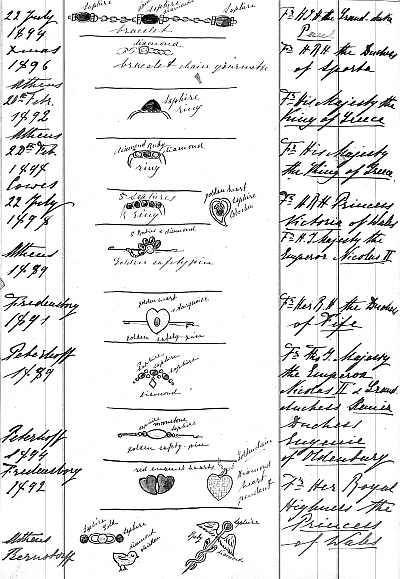 22 July
1894
sapphire
sapphire
bracelet
Fr H.I.H the Grand duke
Paul
Xmas
1896
diamond
bracelet chain gourmette
Fr H R H the Duchess
of Sparta
Athens
1892
saphire
ring
Fr His Majesty the
King of Greece
Athens
diamond Ruby diamond
ring
Fr His Majesty
the King of Greece
Cowes
22 July
5 saphires
ring
golden heart
saphire
Fr H R H Princess
Victoria of Wales
Athens
1889
5 Rubies & diamond
Golden safety pin
Fr H. I. Majesty the
Emperor Nicolas II
Fredensborg
1891
golden heart
turquoise
golden safety-pin
Fr Her R. H the Duchess
of Fife
Peterhoff
1889
saphire
saphire
diamond
Fr Th I. Majesty
the Emperor
Nicolas II & Grand
duchess Xenia
Duchess
Eugenie
of Oldenburg
Peterhoff
1894
moonstone
saphire
golden safety-pin
Fredensborg
1892
red enamel hearts
Golden chain
diamond
heart
pendant
Fr Her Royal
Highness the
Princess
of Wales
Athens
Bernstorff
saphire
Gold
saphire
diamond
saphire
Ruby
diamond